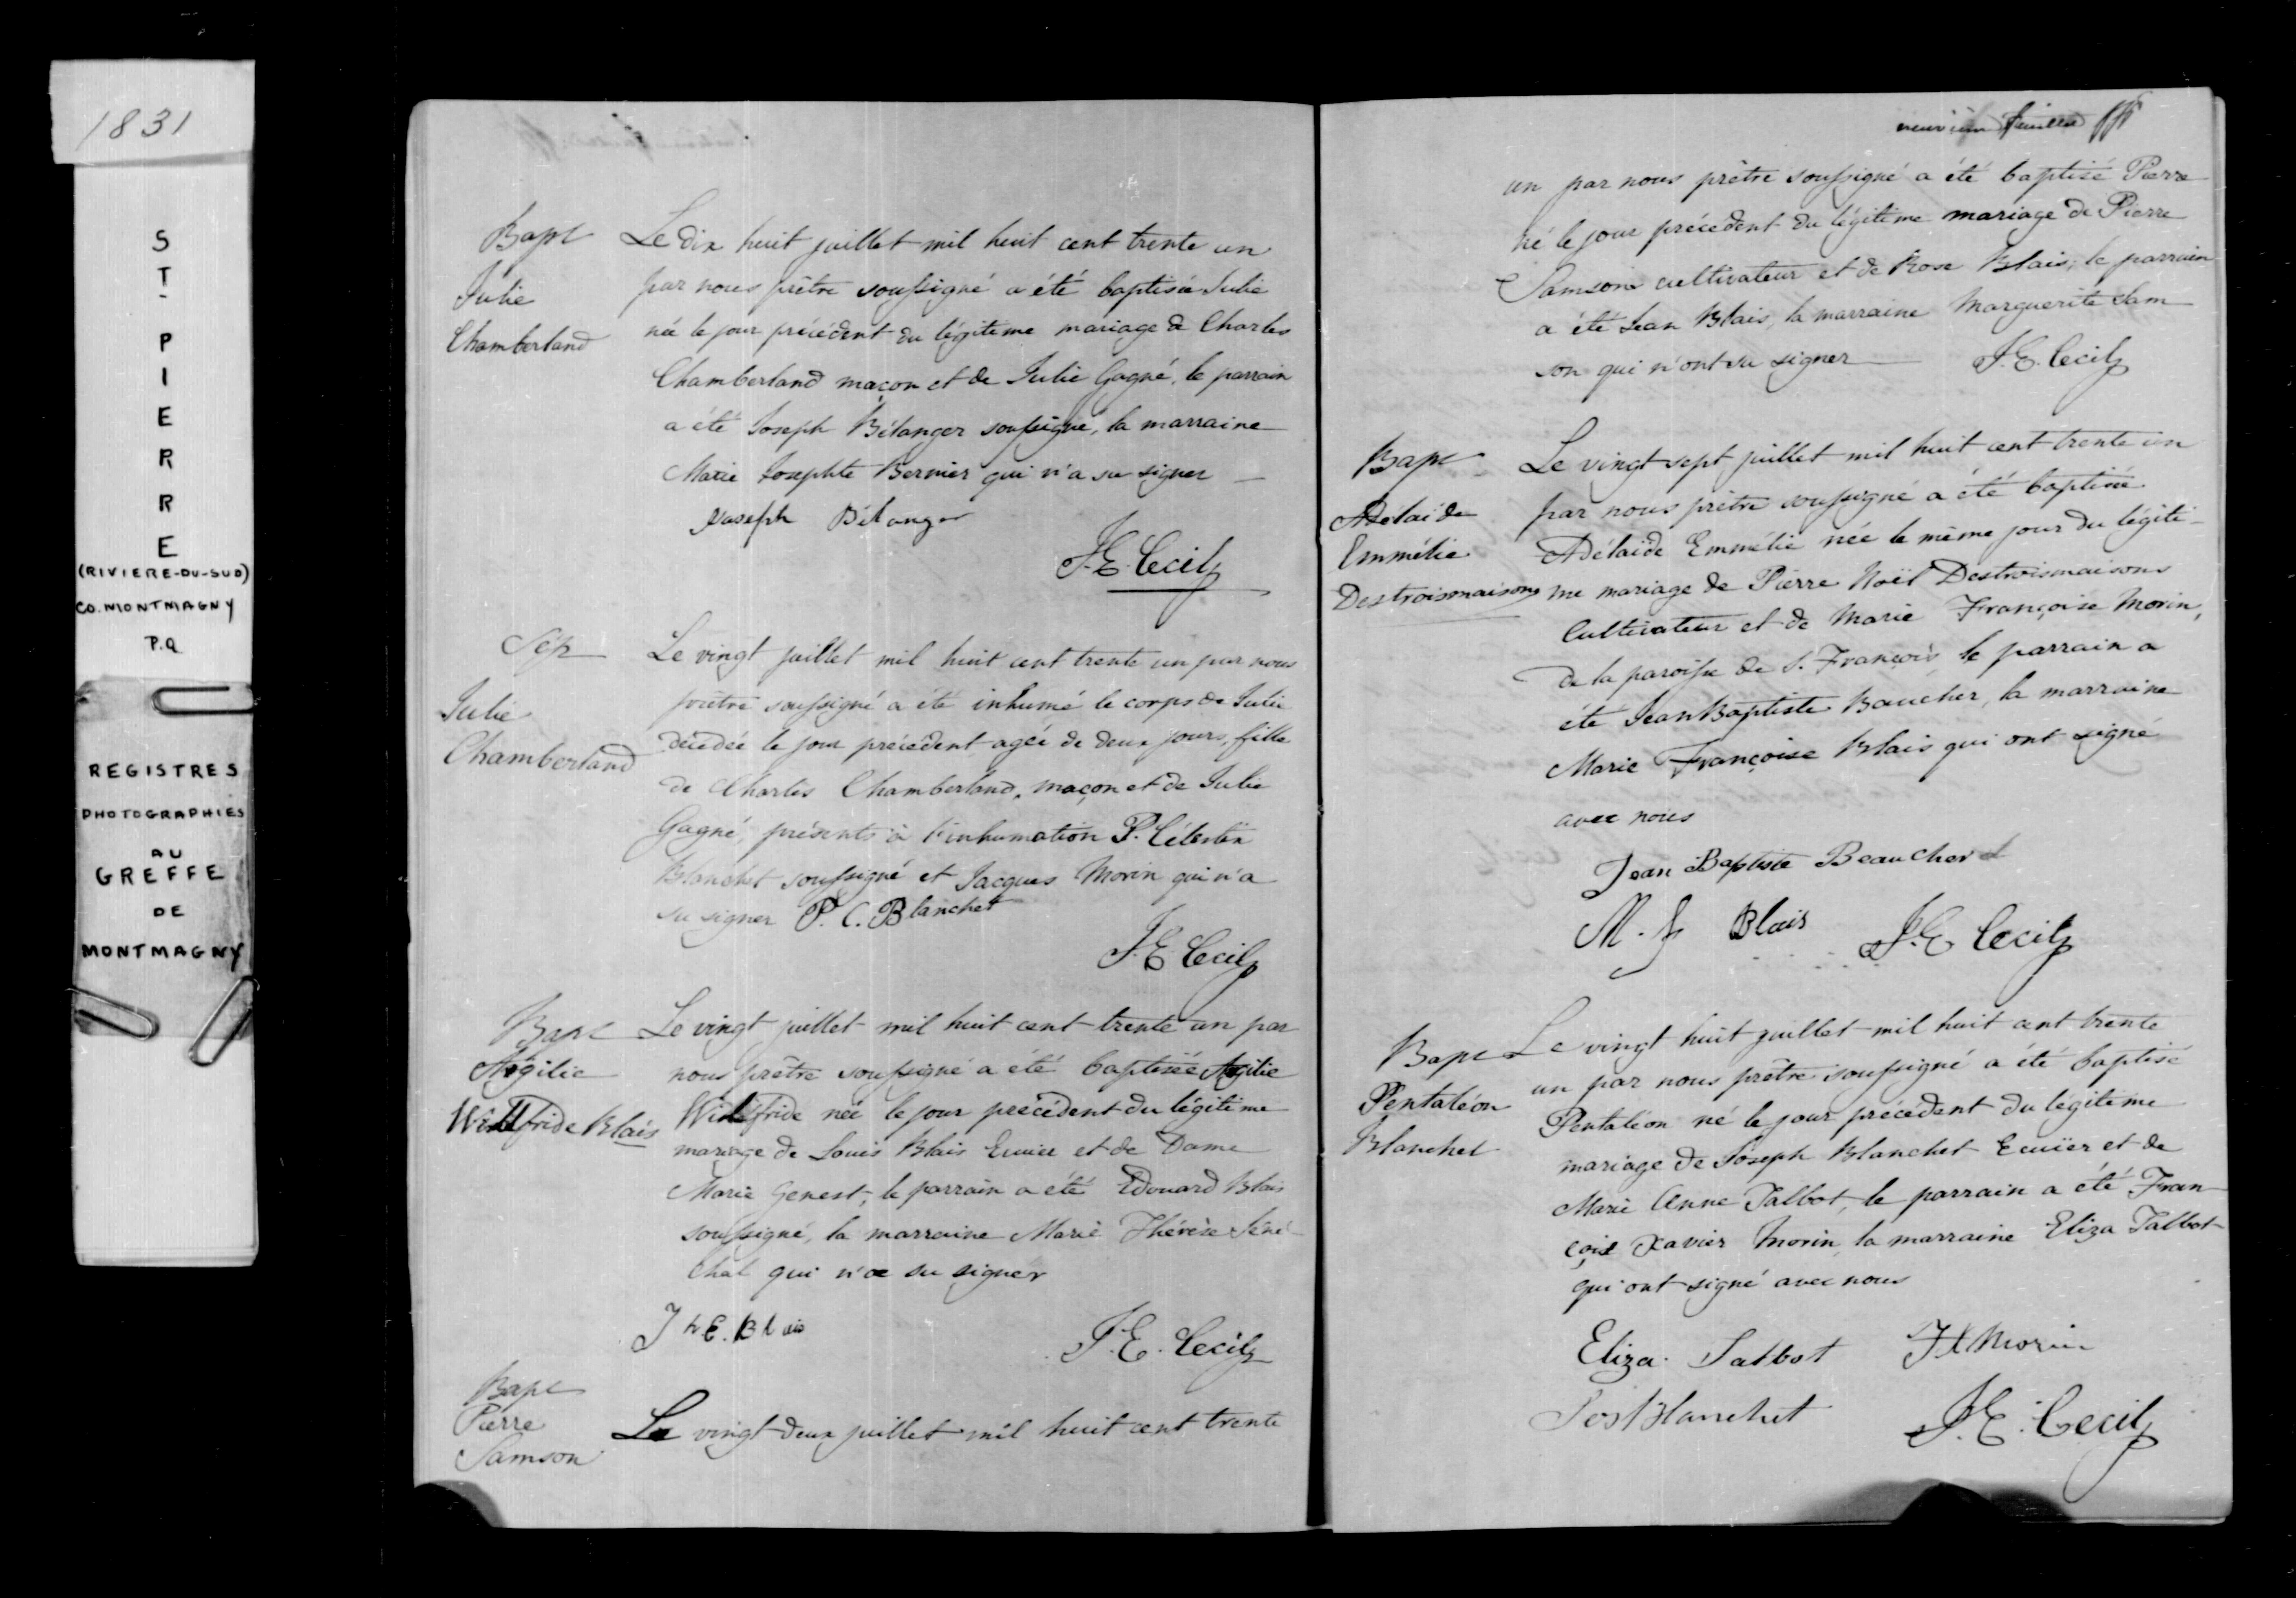 1831
ST-PIERRE
(RIVIERE-DU-SUD)
CO. MONTMAGNY
P.Q
REGISTRES
PHOTOGRAPHIES
AU
GREFFE
DE
MONTMAGNY
Bapt
Julie
Chamberland
Le dix huit juillet mil huit cent trente un
par nous prêtre soussigné a été baptisée Julie
née le jour précédent du légitime mariage de Charles
Chamberland maçon et de Julie Gagné, le parrain
a été Joseph Bélanger soussigné, la marraine
Marie Josephte Bernier qui n'a su signer
Joseph Bélanger
J.E. Cecil
Sép
Julie
Chamberland
Le vingt juillet mil huit cent trente un par nous
prêtre soussigné a été inhumé le corps de Julie
décédée le jour précédent agée de deux jours, fille
de Charles Chamberland, maçon et de Julie
Gagné, présents à l'inhumation P. Célestin
Blanchet soussigné et Jacques Morin qui n'a
su signer P. C. Blanchet
J.E Cecil
Bapt
Wilfride Blais
Le vingt juillet mil huit cent trente un par
nous prêtre soussigné a été baptisée
Wilfride née le jour précédent du légitime
mariage de Louis Blais Ecuier et de Dame
Marie Genest, le parrain a été Edouard Blais
soussigné, la marraine Marie Thérèse Séné-
chal qui n'a su signer
E. Blais
J.E. Cecil
Bapt
Pierre
Samson
Le vingt deux juillet mil huit cent trente
neuvième feuillet
un par nous prêtre soussigné a été baptisé Pierre
né le jour précédent du légitime mariage de Pierre
Samson cultivateur et de Rose Blais, le parrain
a été Jean Blais, la marraine Marguerite Sam
son qui n'ont su signer J.E. Cecil
Bapt
Adelaide
Emmélie
Destroismaisons
Le vingt sept juillet mil huit cent trente un
par nous prêtre soussigné a été baptisée
Adélaïde Emmélie née le même jour du légiti-
me mariage de Pierre Noël Destroismaisons
Cultivateur et de Marie Françoise Morin,
de la paroisse de S. François le parrain a
été Jean Baptiste Baucher, la marraine
Marie Françoise Blais qui ont signé
avec nous
Jean Baptiste Beaucher
M. F Blais J.E Cecil
Bapt
Pentaléon
Blanchet
Le vingt huit juillet mil huit cent trente
un par nous prêtre soussigné a été baptisé
Pentaléon né le jour précédent du légitime
mariage de Joseph Blanchet Ecuïer et de
Marie Anne Talbot, le parrain a été Fran-
çois Xavier Morin, la marraine Eliza Talbot
qui ont signé avec nous
Eliza Talbot F X Morin
Jos Blanchet J.E. Cecil